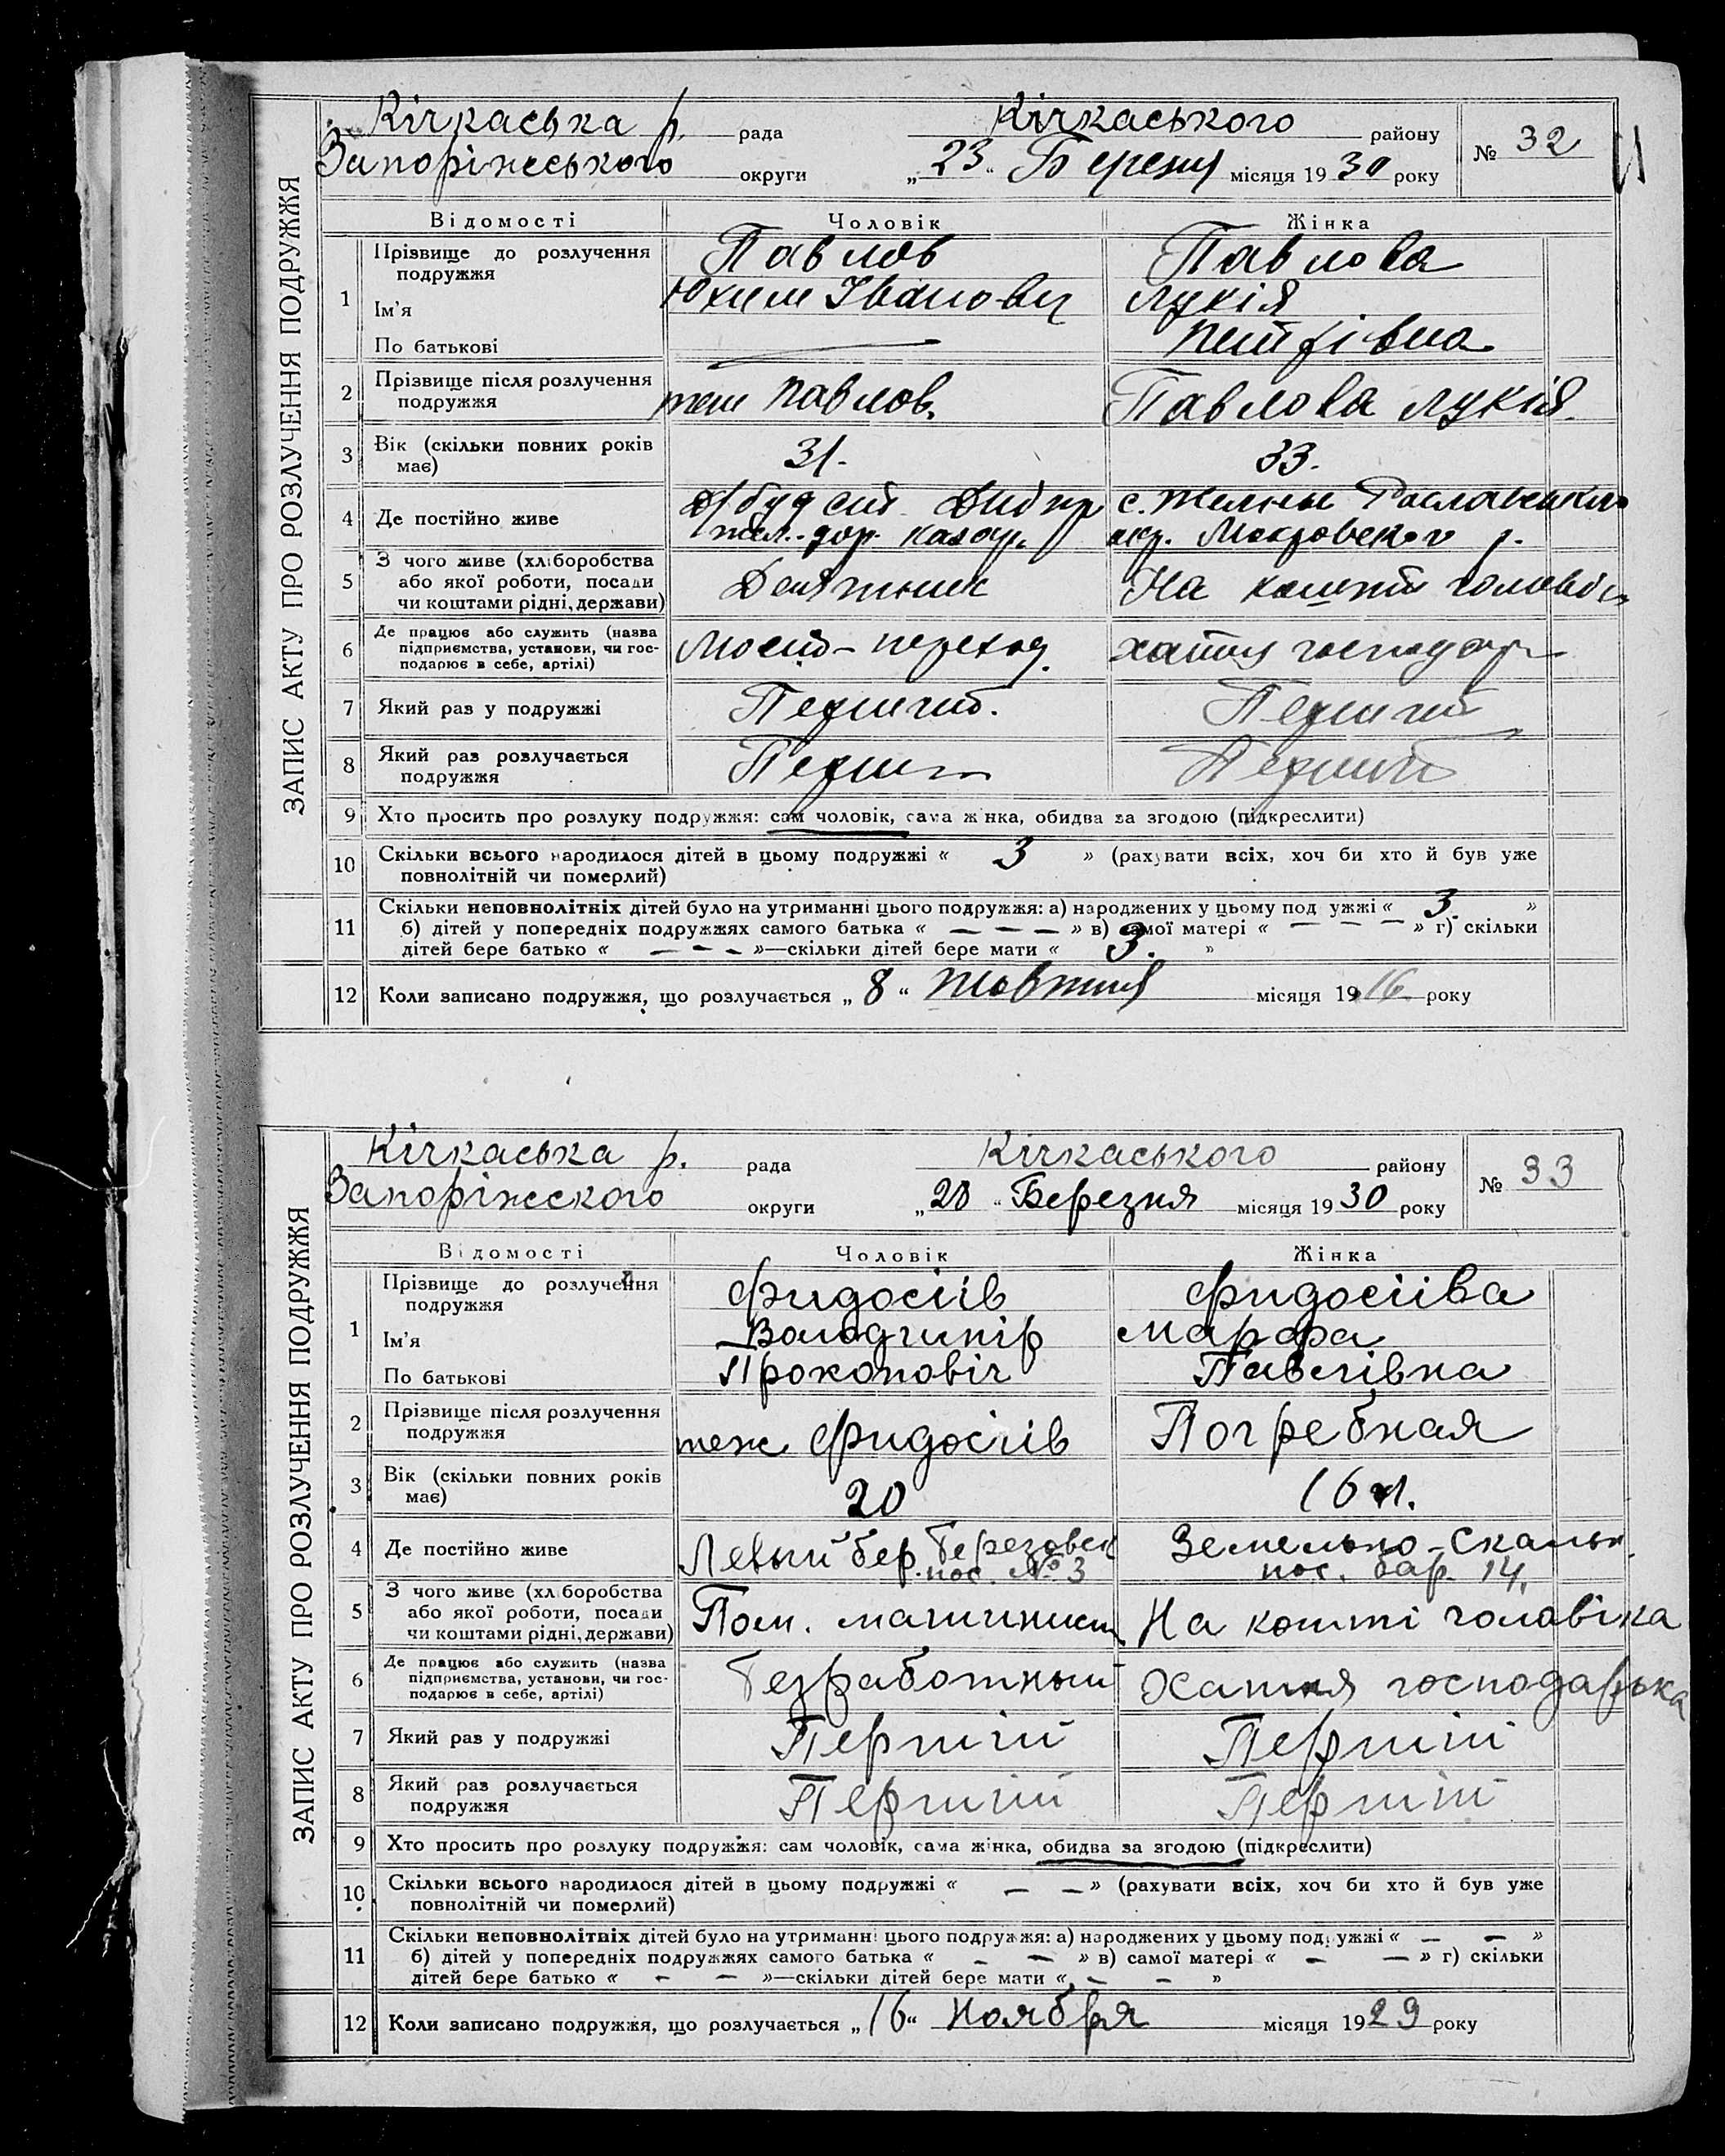 ЗАПИС АКТУ ПРО РОЗЛУЧЕННЯ ПОДРУЖЖЯ
Кічкаська р. рада Кічкаського району № 32
Запоріжського округи „23“ Березня місяця 1930 року
Відомості Чоловік Жінка
1 Прізвище до розлучення подружжя Павлов Павлова
Ім'я Юхим Іванович Лукія
По батькові Петрівна
2 Прізвище після розлучення подружжя теж Павлов. Павлова Лукія.
3 Вік (скільки повних років має) 31. 33.
4 Де постійно живе
жел.-дор. казар. окр. Мокровского р.
5 З чого живе (хліборобства або якої роботи, посади чи коштами рідні, держави) Десятник На кошти чоловіка
6 Де працює або служить (назва підприємства, установи, чи господарює в себе, артілі) Мост-переход. хатня господар
7 Який раз у подружжі Перший. Перший
8 Який раз розлучається подружжя Перший Перший
9 Хто просить про розлуку подружжя: сам чоловік, сама жінка, обидва за згодою (підкреслити)
10 Скільки всього народилося дітей в цьому подружжі « 3 » (рахувати всіх, хоч би хто й був уже
повнолітній чи померлий)
11 Скільки неповнолітніх дітей було на утриманні цього подружжя: а) народжених у цьому подружжі « 3. »
б) дітей у попередніх подружжях самого батька « — — — » в) самої матері « — — — » г) скільки
дітей бере батько « — — — »—скільки дітей бере мати « 3. »
12 Коли записано подружжя, що розлучається „8“ Жовтня місяця 1916 року
ЗАПИС АКТУ ПРО РОЗЛУЧЕННЯ ПОДРУЖЖЯ
Кічкаська р. рада Кічкаського району № 33
Запоріжского округи „28“ Березня місяця 1930 року
Відомості Чоловік Жінка
1 Прізвище до розлучення подружжя Фидосіїв Фидосіїва
Ім'я Володимір Марфа
По батькові Прокоповіч Павлівна
2 Прізвище після розлучення подружжя теж Фидосіїв Погребная
3 Вік (скільки повних років має) 20 16 л.
4 Де постійно живе Левый бер. Березовск Земельно-Скальн.
пос. № 3 пос. бар. 14.
5 З чого живе (хліборобства або якої роботи, посади чи коштами рідні, держави) Пом. машинист На кошті чоловіка
6 Де працює або служить (назва підприємства, установи, чи господарює в себе, артілі) Безработный Хатня господарька
7 Який раз у подружжі Першій Першій
8 Який раз розлучається подружжя Першій Першій
9 Хто просить про розлуку подружжя: сам чоловік, сама жінка, обидва за згодою (підкреслити)
10 Скільки всього народилося дітей в цьому подружжі « — — » (рахувати всіх, хоч би хто й був уже
повнолітній чи померлий)
11 Скільки неповнолітніх дітей було на утриманні цього подружжя: а) народжених у цьому подружжі « — — »
б) дітей у попередніх подружжях самого батька « — — » в) самої матері « — — » г) скільки
дітей бере батько « — — »—скільки дітей бере мати « — — »
12 Коли записано подружжя, що розлучається „16“ Ноября місяця 1929 року